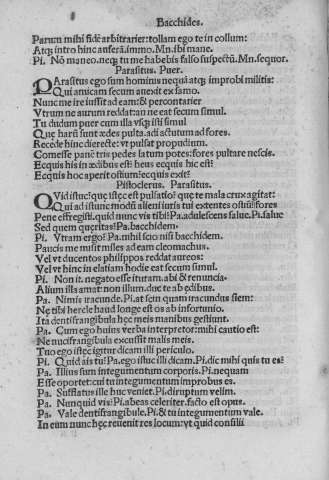 Bacchides.
Parum mihi fidē arbitrarier: tollam ego te in collum:
Atq; intro hinc auferā. immo. Mn. ibi mane.
Pi. Nō maneo. neq; tu me habebis falso suspectū. Mn. sequor.
Parasitus. Puer.
PArasitus ego sum hominus nequā atq; improbi militis:
Qui amicam secum auexit ex samo.
Nunc me ire iussit ad eam: & percontarier
Vtrum ne aurum reddat: an ne eat secum simul.
Tu dudum puer cum illa vsq; isti simul
Que harū sunt ædes pulta. adi actutum ad fores.
Recede hinc dierecte: vt pulsat propudium.
Comesse panē tris pedes latum potes: fores pultare nescis.
Ecquis his in ædibus est: heus ecquis hic est:
Ecquis hoc aperit ostium: ecquis exit:
Pistoclerus. Parasitus.
QVid istuc: que istęc est pulsatio: que te mala crux agitat:
Qui ad istunc modū alieni iuris tui extentes ostiū: fores
Pene effregisti. quid nunc vis tibi: Pa. adulescens salue. Pi. salue
Sed quem queritas: Pa. bacchidem.
Pi. Vtram ergo: Pa. nihil scio nisi bacchidem.
Paucis me misit miles ad eam cleomachus.
Vel vt ducentos philippos reddat aureos:
Vel vt hinc in elatiam hodie eat secum simul.
Pi. Non it. negato esse ituram. abi & renuncia.
Alium illa amat non illum. duc te ab ędibus.
Pa. Nimis iracunde. Pi. at scin quam iracundus siem:
Ne tibi hercle haud longe est os ab infortunio.
Ita dentifrangibula hęc meis manibus gestiunt.
Pa. Cum ego huius verba interpretor: mihi cautio est:
Ne nucifrangibula excussit malis meis.
Tuo ego istęc igitur dicam illi periculo.
Pi. Quid ais tu: Pa. ego istuc illi dicam. Pi. dic mihi quis tu es:
Pa. Illius sum integumentum corporis. Pi. nequam
Esse oportet: cui tu integumentum improbus es.
Pa. Sufflatus ille huc veniet. Pi. diruptum velim.
Pa. Nunquid vis: Pi. abeas celeriter. facto est opus.
Pa. Vale dentifrangibule. Pi. & tu integumentum vale.
In eum nunc hęc reuenit res locum: vt quid consilii